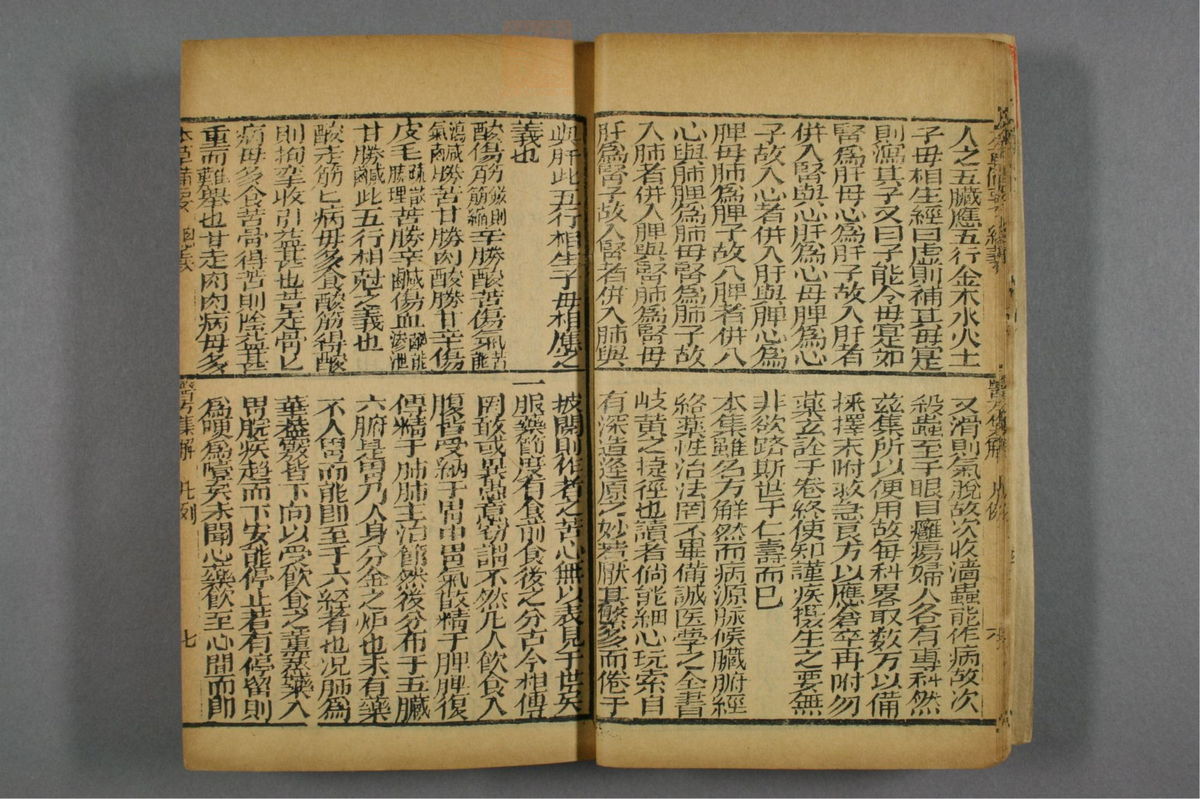 人之五臟應五行金木水火土
子母相生經曰虛則補其母實
則瀉其子又曰子能令母實如
腎為肝母心為肝子故入肝者
併入腎與心肝為心母脾為心
子故入心者併入肝與脾心為
脾母肺為脾子故入脾者併入
心與肺脾為肺母腎為肺子故
入肺者併入脾與腎肺為腎母
肝為腎子故入腎者併入肺與
與肝此五行相生子母相應之
義也
酸傷筋斂則筋縮辛勝酸苦傷氣苦能
瀉氣鹹勝苦甘勝肉酸勝甘辛傷
皮毛疏散腠理苦勝辛鹹傷血鹹能滲泄
甘勝鹹此五行相尅之義也
酸走筋匕病毋多食酸筋得酸
則拘攣收引益甚也苦走骨匕
病毋多食苦骨得苦則陰益甚
重而難舉也甘走肉肉病毋多
又滑則氣脫故次收濇蟲能作病故次
殺蟲至于眼目癰瘍婦人各有專科然
茲集所以便用故每科畧取数方以備
採擇末附救急良方以應倉卒再附勿
藥玄詮于卷終使知謹疾攝生之要無
非欲路斯世于仁壽而已
本集雖名方觧然而病源脉候臟腑經
絡藥性治法罔不畢備誠医學之全書
岐黄之捷徑也讀者倘能細心玩索自
有深造逢原之妙若厭其繁多而倦于
披閱則作者之苦心無以表見于世矣
一服藥節度有食前食後之分古今相傳
罔敢或異愚意竊謂不然凡人飲食入
腹皆受納于胃中胃氣散精于脾脾復
傳精于肺肺主治節然後分布于五臟
六腑是胃乃人身分金之炉也未有藥
不入胃而能即至于六經者也况肺為
華蓋竅皆下向以受飲食之薰蒸藥入
胃脘疾趨而下安能停止若有停留則
為哽為噎矣未聞心藥飲至心間而即
本草備要
醫方集解 凡例 七